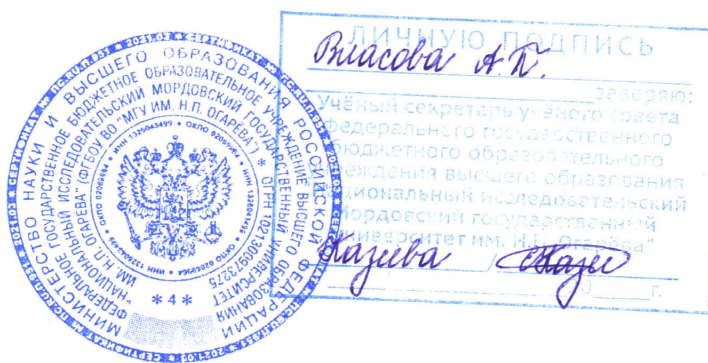 СЕРТИФИКАТ № ПС.RU.П.951 * 2021.03 *
МИНИСТЕРСТВО НАУКИ И ВЫСШЕГО ОБРАЗОВАНИЯ РОССИЙСКОЙ ФЕДЕРАЦИИ
ФЕДЕРАЛЬНОЕ ГОСУДАРСТВЕННОЕ БЮДЖЕТНОЕ ОБРАЗОВАТЕЛЬНОЕ УЧРЕЖДЕНИЕ ВЫСШЕГО ОБРАЗОВАНИЯ
"НАЦИОНАЛЬНЫЙ ИССЛЕДОВАТЕЛЬСКИЙ МОРДОВСКИЙ ГОСУДАРСТВЕННЫЙ УНИВЕРСИТЕТ
ИМ. Н.П. ОГАРЕВА" (ФГБОУ ВО "МГУ ИМ. Н.П. ОГАРЕВА") *
*4*
ЛИЧНУЮ ПОДПИСЬ
Власова А.П.
заверяю:
Учёный секретарь учёного совета
Федерального государственного
бюджетного образовательного
учреждения высшего образования
национальный исследовательский
Мордовский государственный
университет им. Н.П. Огарёва"
г.